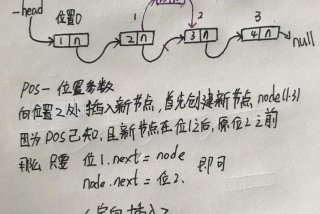 head 位置0 1 2 3
1 n 2 n 3 n 4 n null
POS - 位置参数
向位置2处插入新节点,首先创建新节点,node(1-3)
因为POS已知,且新节点在位1之后,原位2之前
那么 只要 位1.next = node 即可
node.next = 位2.